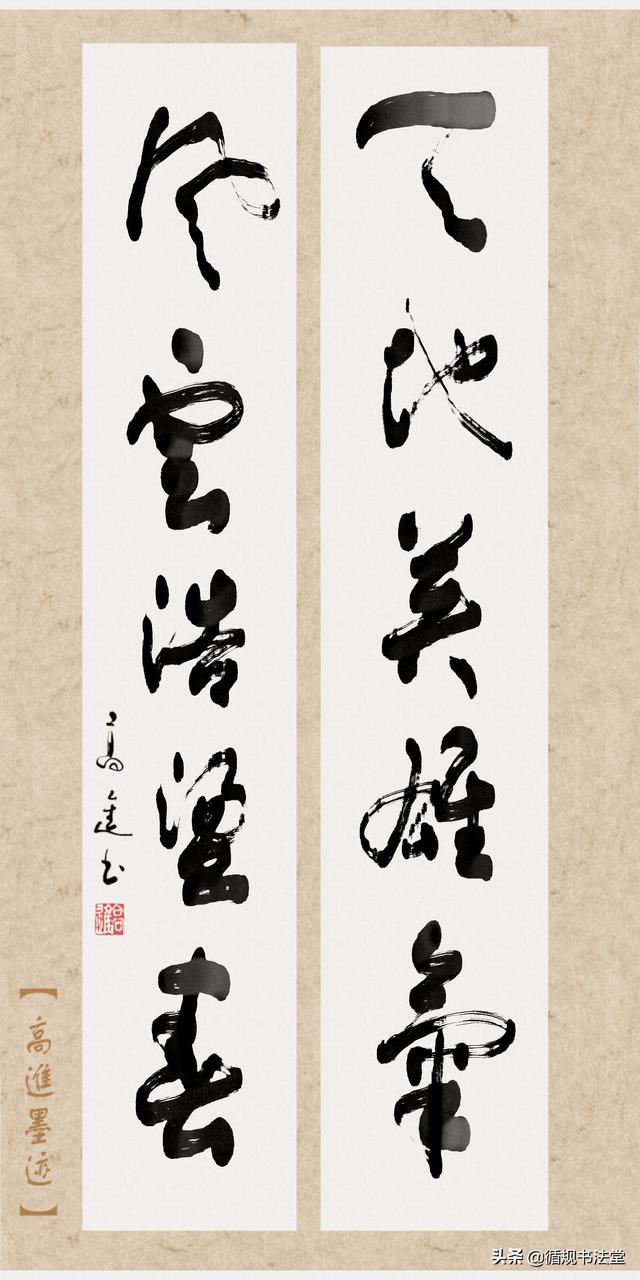 天地英雄氣
風雲浩蕩春
高進书
高進
【高進墨迹】
头条 @循规书法堂